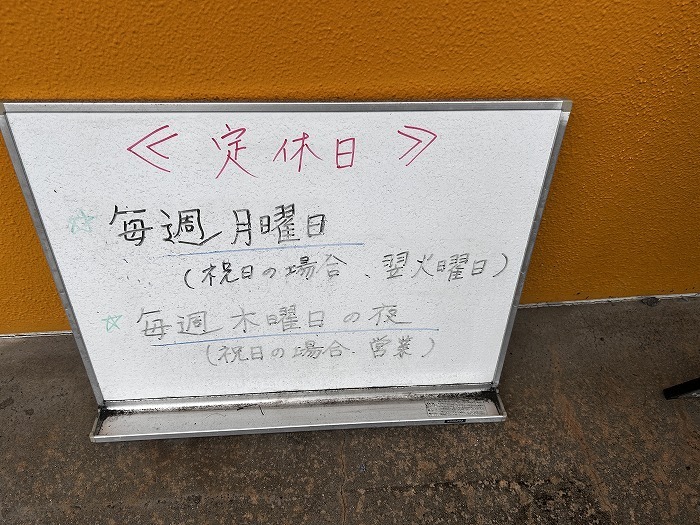 ≪ 定休日 ≫
☆ 毎週月曜日
(祝日の場合、翌火曜日)
☆ 毎週木曜日の夜
(祝日の場合、営業)